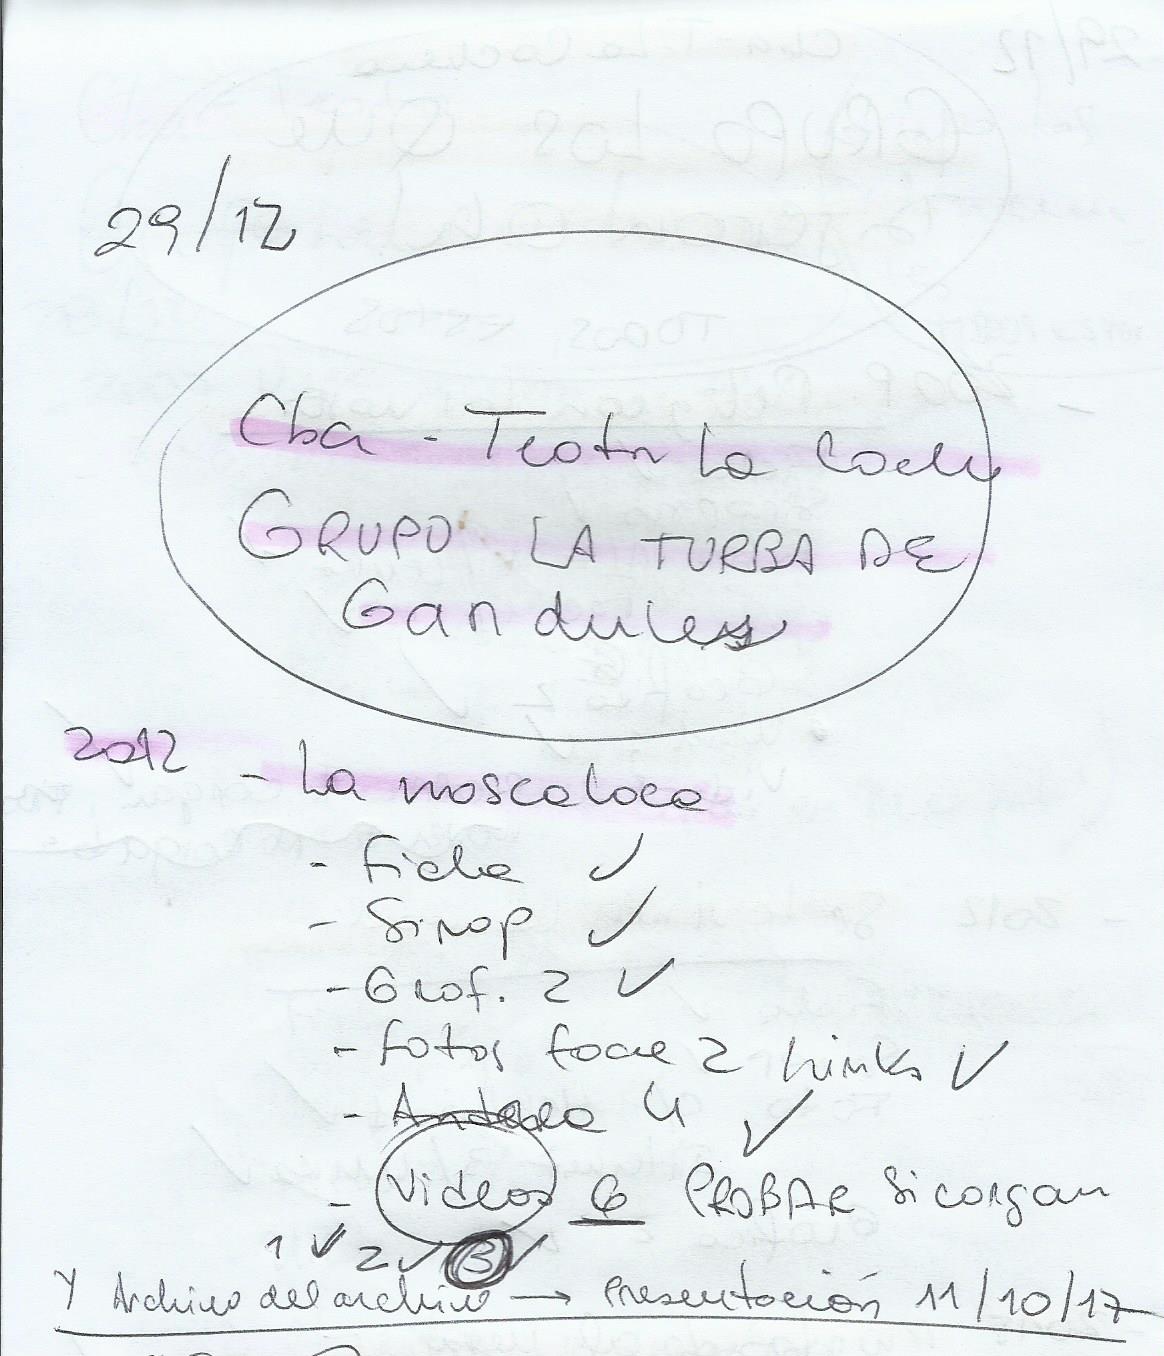 29/12
Cba - Teatro La Coche
GRUPO LA TURBA DE
Gandules
2012 - La mosca loca
- Ficha ✓
- Sinop ✓
- Graf. 2 ✓
- Fotos face 2 Links ✓
- 4 ✓
- Videos 6 PROBAR Si cargan
1 ✓ 2 ✓ 3 ✓
Y Archivo del archivo → Presentación 11/10/17